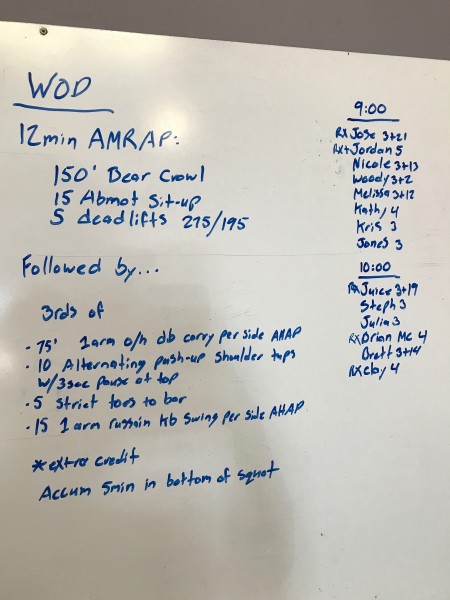 WOD
12min AMRAP:
150' Bear Crawl
15 Abmat Sit-up
5 deadlifts 275/195
Followed by...
3rds of
· 75' 1arm o/h db carry per side AHAP
· 10 Alternating push-up shoulder taps
w/3sec pause at top
· 5 Strict toes to bar
· 15 1 arm russain kb swing per side AHAP
*extra credit
Accum 5min in bottom of squat
9:00
RX Jose 3+21
RX+Jordan 5
Nicole 3+13
Woody 3+2
Melissa 3+12
Kathy 4
Kris 3
Jones 3
10:00
RX Juice 3+19
Steph 3
Julia 3
RX Brian Mc 4
Brett 3+14
RX Clay 4